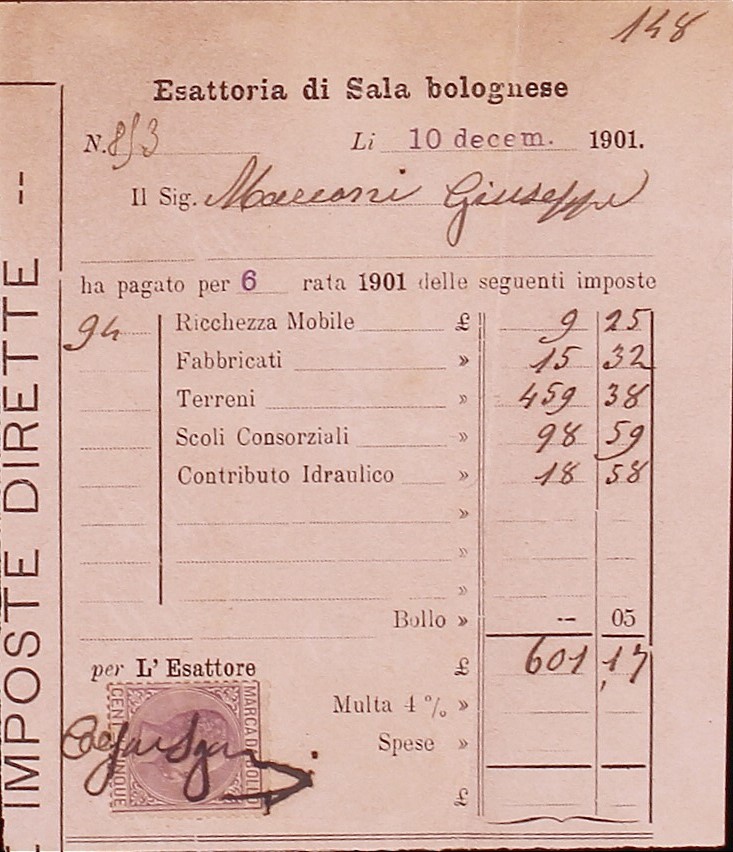 148
Esattoria di Sala bolognese
N. 853 Li 10 decem. 1901.
Il Sig. Marconi Giuseppe
ha pagato per 6 rata 1901 delle seguenti imposte
94 Ricchezza Mobile £ 9 25
Fabbricati » 15 32
Terreni » 459 38
Scoli Consorziali » 98 59
Contributo Idraulico » 18 58
»
»
»
Bollo » -- 05
per L'Esattore £ 601,17
Multa 4 % »
Spese »
£
MARCA DA BOLLO
IMPOSTE DIRETTE --